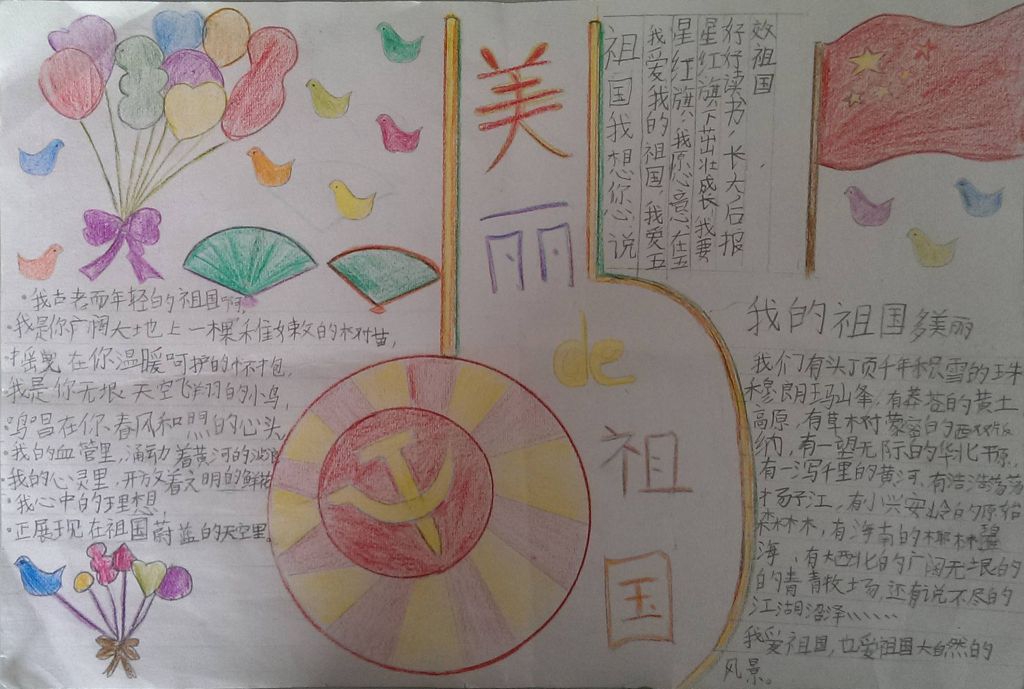 美
丽
de
祖
国
祖国我想你心说
我爱我的祖国,我爱五
星红旗,我愿意在五
星红旗下茁壮成长,我要
仔仔读书,长大后报
效祖国
·我古老而年轻的祖国啊,
·我是你广阔大地上一棵稚嫩的树苗,
摇曳在你温暖呵护的怀抱,
我是你无垠天空飞翔的小鸟,
鸣唱在你春风和煦的心头
·我的血管里,涌动着黄河的波浪
·我的心灵里,开放着文明的鲜花
·我心中的理想,
·正展现在祖国蔚蓝的天空里。
我的祖国多美丽
我们有头顶千年积雪的珠
穆朗玛山峰,有莽苍的黄土
高原,有草树蒙密的西双版
纳,有一望无际的华北平原,
有一泻千里的黄河,有浩浩荡荡
扬子江,有小兴安岭的原始
森林木,有海南的椰林
海、有大西北的广阔无垠的
的青青牧场,还有说不尽的
江湖沼泽、、、、、、
我爱祖国,也爱祖国大自然的
风景。